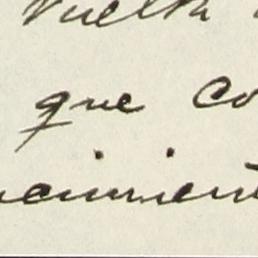 vuelta
que co
ncimient